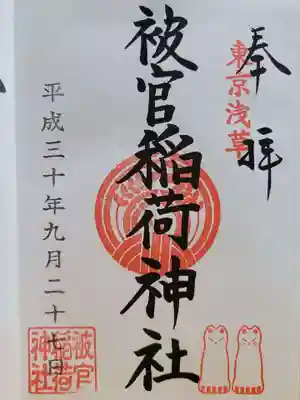 奉拝
東京浅草
被官稲荷神社
平成三十年九月二十七日
被官
稲荷
神社